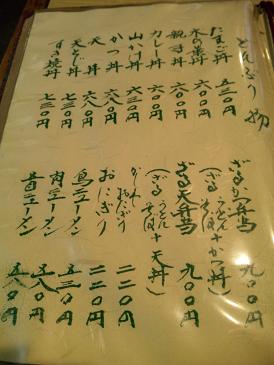 どんぶり物
たまご丼 五三〇円
木の葉丼 六〇〇円
親子丼 六〇〇円
カレー丼
山かけ丼 六三〇円
かつ丼 六八〇円
天丼 六八〇円
天とじ丼 七三〇円
すき焼丼 七三〇円
ざるかつ弁当 九〇〇円
(ざるうどん + かつ丼)
ざる天弁当 九〇〇円
(ざるうどん + 天丼)
おにぎり 二二〇円
おにぎり 二二〇円
鳥ラーメン 五三〇円
肉ラーメン 五八〇円
五目ラーメン 五八〇円